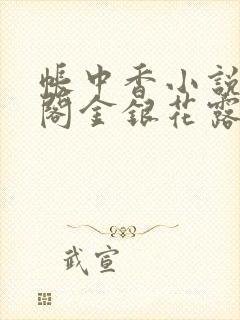 帳中香小說
閣金銀花露
武宣